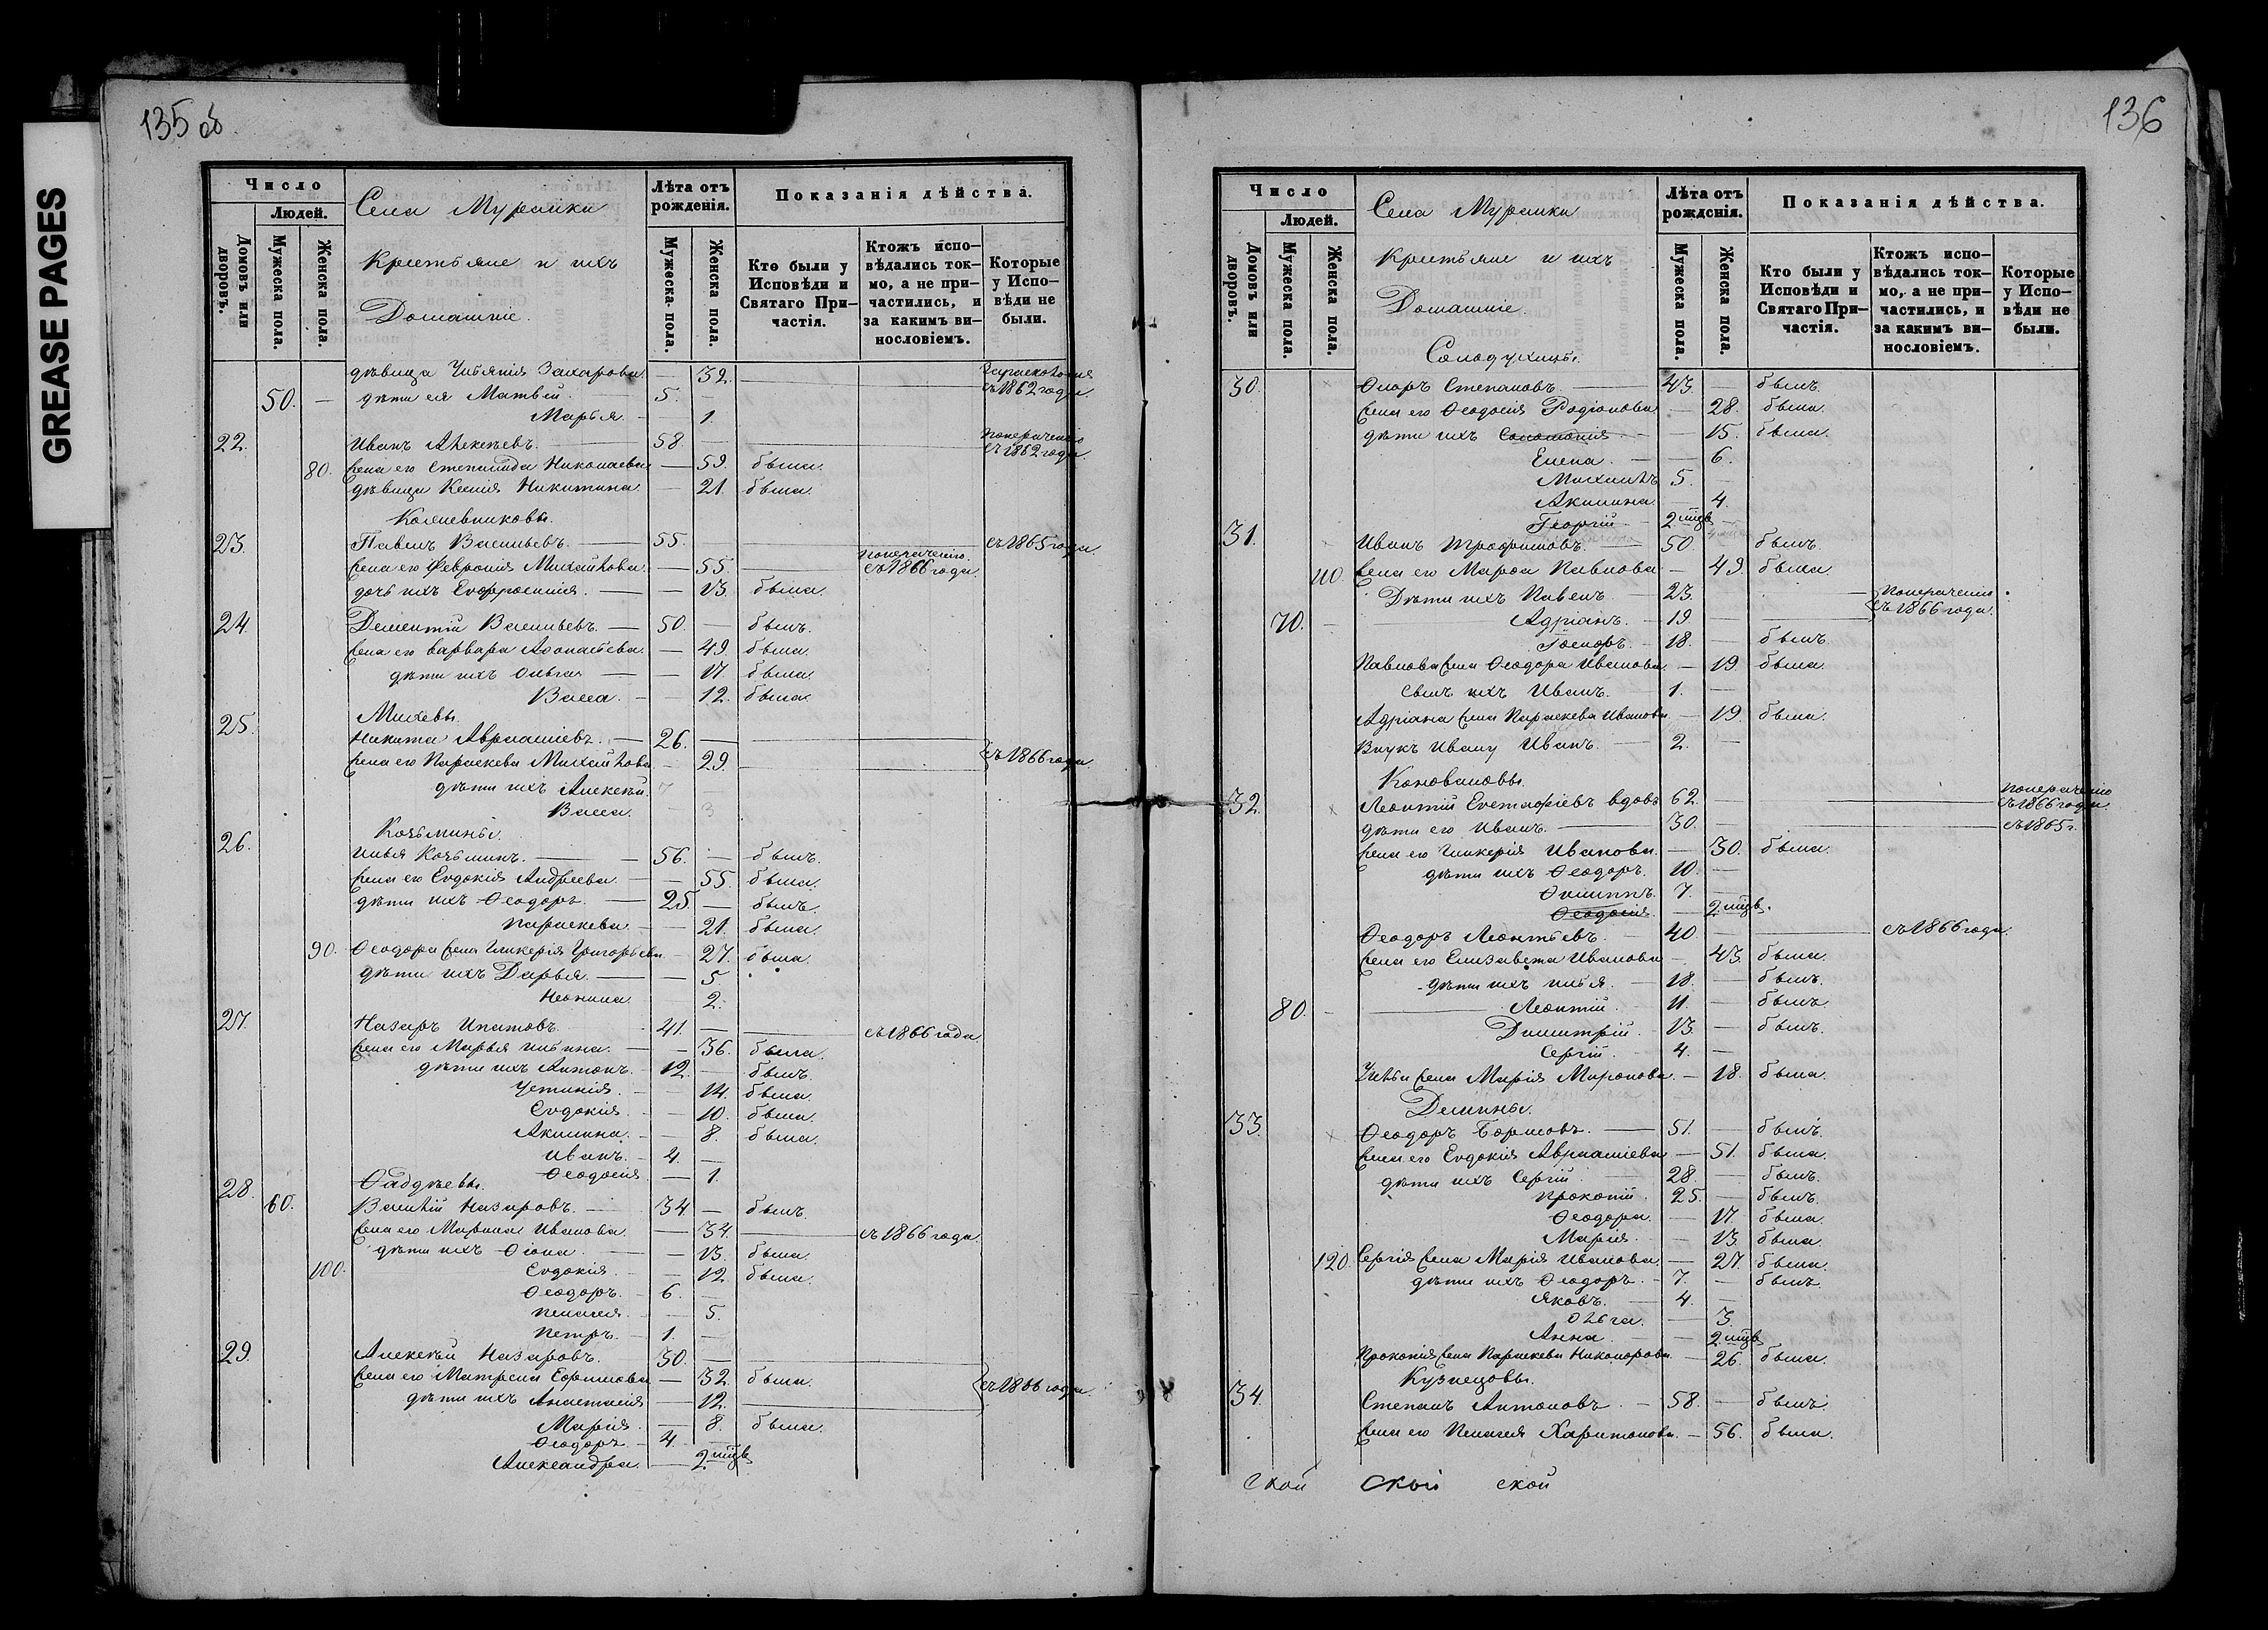 GREASE PAGES
135 об
Число
Людей.
Домовъ или дворовъ.
Мужеска пола.
Женска пола.
Села Мурашки
Крестьяне и ихъ
Домашніе.
Лѣта отъ рожденія.
Мужеска пола.
Женска пола.
Показанія дѣйства.
Кто были у Исповѣди и Святаго Причастія.
Ктожъ исповѣдались токмо, а не причастились, и за какимъ винословіемъ.
Которые у Исповѣди не были.
дѣвица Захарова — 32. съ 1862 года
50. — дѣти ея Матвѣй. 5. —
Марья. — 1.
22. Иванъ Алексѣевъ. 58. — по нераченію съ 1862 года
80. жена его Степанида Николаева — 59. была.
дѣвица Ксенія Никитина — 21. была.
23. Павелъ Васильевъ. 55. съ 1865 года.
жена его Февронія Михайлова — 55. по нераченію съ 1866 года.
дочь ихъ Евфросинія. — 13. была.
24. Дементій Васильевъ. — 50. — былъ.
жена его Варвара Аѳонасьева. — 49. была.
дѣти ихъ Ольга — 17. была.
Васса. — 12. была.
25. Михевы.
Никита Аврааміевъ. — 26. —
жена его Параскева Михайлова — 29. съ 1866 года.
дѣти ихъ Алексѣй. 7 —
Васса. — 3
26. Козьмины.
Илья Козьминъ. — 56. — былъ.
жена его Евдокія Андреева. — 55. была.
дѣти ихъ Ѳеодоръ — 25. — былъ.
Параскева — 21. была.
90. Ѳеодора жена Гликерія Григорьева — 27. была.
дѣти ихъ Дарья. — 5.
Неонила — 2.
27. Назаръ Ипатовъ. 41. — съ 1866 года
жена его Марья Ильина. — 36. была.
дѣти ихъ Антонъ. — 12. — былъ.
Устинія. — 14. была.
Евдокія. — 10. была.
Акилина. — 8. была.
Иванъ. — 4. —
Ѳеодосія — 1.
28. Ѳаддѣевы.
60. Василій Назаровъ. — 34. — былъ.
жена его Марина Иванова. — 34. съ 1866 года.
дѣти ихъ — 13. была.
100. Евдокія. — 12. была.
Ѳеодоръ. — 6. —
Пелагея. — 5.
Петръ. — 1. —
29. Алексѣй Назаровъ. 30. —
жена его Матрена Ефимова — 32. была. съ 1866 года.
дѣти ихъ Анастасія — 12.
Марія. — 8. была.
Ѳеодоръ — 4. —
Александра. — 2 мцѣ
136
Число
Людей.
Домовъ или дворовъ.
Мужеска пола.
Женска пола.
Села Мурашки
Крестьяне и ихъ
Домашніе.
Лѣта отъ рожденія.
Мужеска пола.
Женска пола.
Показанія дѣйства.
Кто были у Исповѣди и Святаго Причастія.
Ктожъ исповѣдались токмо, а не причастились, и за какимъ винословіемъ.
Которые у Исповѣди не были.
Солодухины.
30. Степановъ. — 43. — былъ.
жена его Ѳеодосія Родіонова — 28. была.
дѣти ихъ Соломонія — 15. была.
Елена. — 6.
Михаилъ 5. —
Акилина — 4.
Георгій — 2 мцѣ —
31. Иванъ Трофимовъ. — 50. былъ.
110. жена его Марѳа Павлова — 49. была.
Дѣти ихъ Павелъ. — 23. — по нераченію съ 1866 года.
70. — Адріанъ. — 19 —
18. — былъ.
Павлова жена Ѳеодора Иванова. — 19 была.
сынъ ихъ Иванъ. 1. —
Адріана жена Параскева Иванова — 19. была.
Внукъ Ивану Иванъ. — 2. —
Коноваловы.
32. Леонтій Евстафіевъ вдовъ 62. — по нераченію съ 1866 года
дѣти его Иванъ. — 30. — съ 1865 г.
жена его Гликерія Иванова. — 30. была.
дѣти ихъ Ѳеодоръ. 10. —
Филиппъ. 7. —
Ѳеодосія. — 2 мцѣ.
Ѳеодоръ Леонтьевъ. 40. — съ 1866 года.
жена его Елизавета Иванова — 43. была.
дѣти ихъ Илья. — 18. — былъ.
80. — Леонтій. 11. — былъ
Димитрій. — 13. — былъ.
Сергій. — 4. —
Ильи жена Марія Миронова. — 18. была.
Демины.
33. Ѳеодоръ Борисовъ. — 51. — былъ.
жена его Евдокія Авраамiева — 51. была.
дѣти ихъ Сергій — 28. — былъ.
Прокопій. 25. — былъ.
Ѳеодора. — 17. была.
Марія. — 13. была.
120. Сергія жена Марія Иванова. — 27. была.
дѣти ихъ Ѳеодоръ. — 7. — былъ.
Яковъ. — 4. —
Ольга. — 3.
Анна. — 2 мцѣ
Прокопія жена Параскева Никонорова — 26. была.
Кузнецовы.
34. Степанъ Антоновъ. — 58. — былъ.
жена его Пелагея Харитонова. — 56. была.
ской ской ской